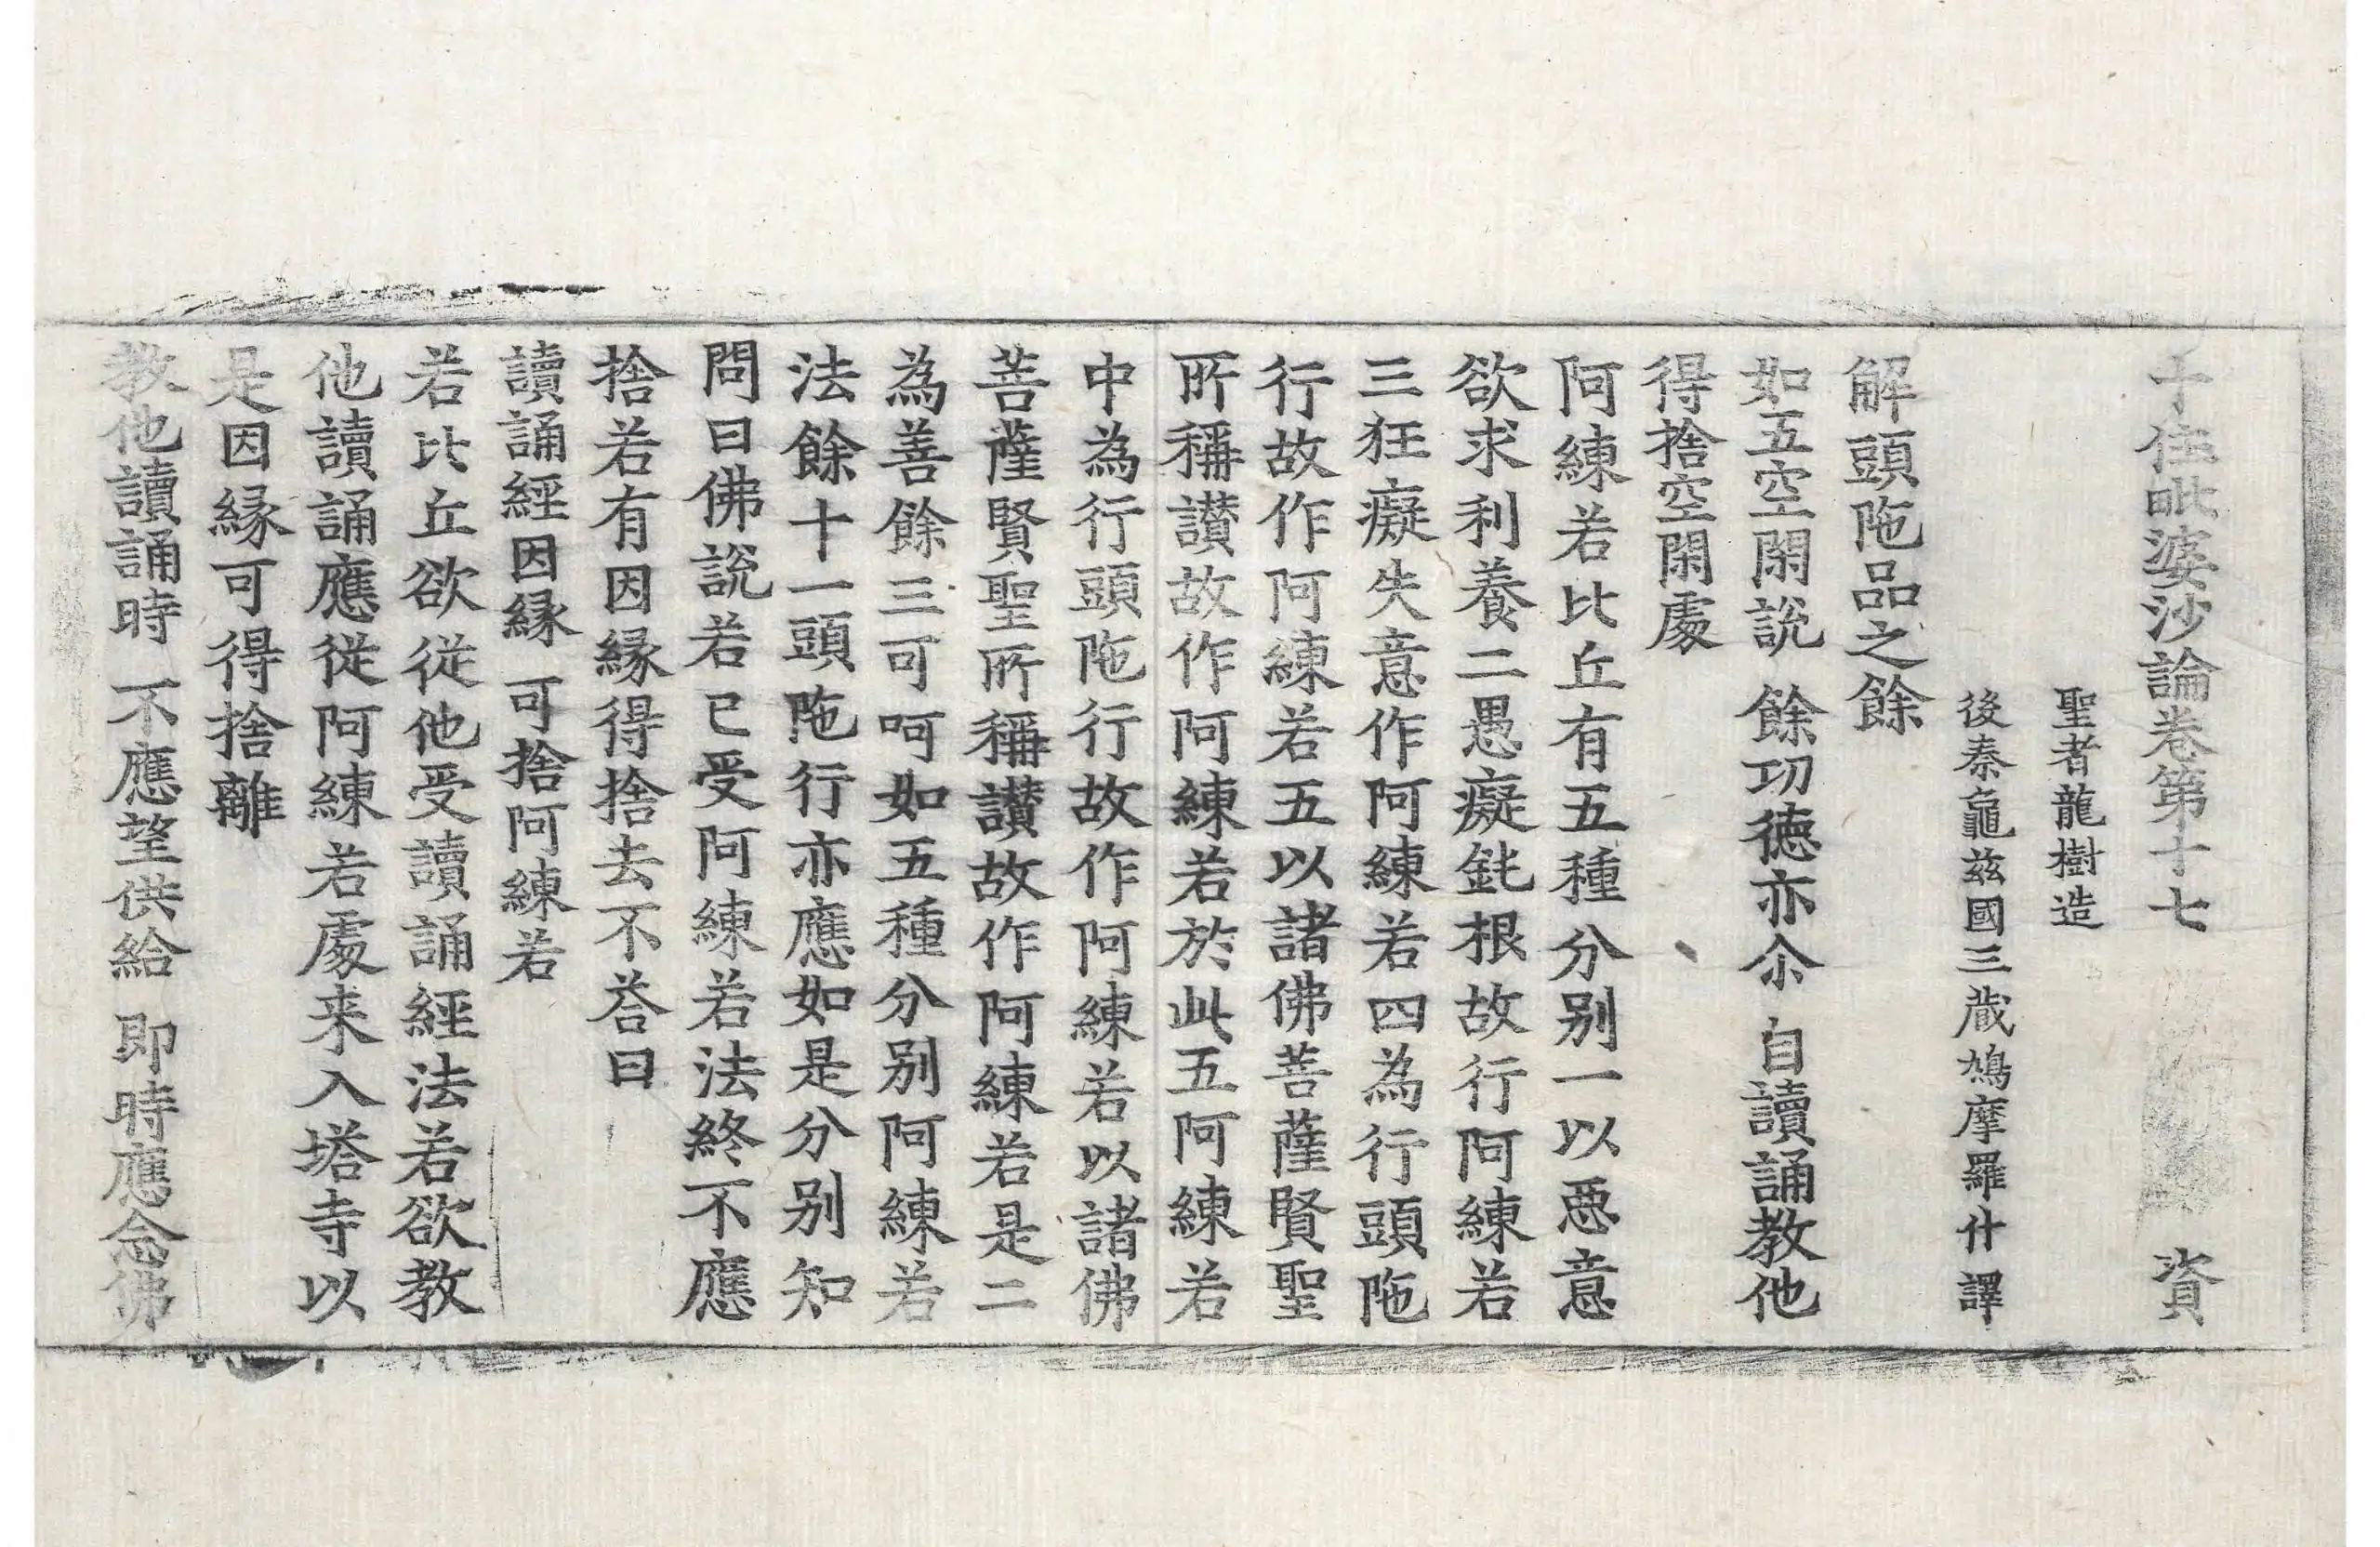 十住毗婆沙論卷第十七 資
聖者龍樹造
後秦龜兹國三蔵鳩摩羅什譯
解頭陁品之餘
如五空閑說 餘功德亦尒 自讀誦教他
得捨空閑處
阿練若比丘有五種分别一以惡意
欲求利養二愚癡鈍根故行阿練若
三狂癡失意作阿練若四為行頭陁
行故作阿練若五以諸佛菩薩賢聖
所稱讃故作阿練若於此五阿練若
中為行頭陁行故作阿練若以諸佛
菩薩賢聖所稱讃故作阿練若是二
為善餘三可呵如五種分别阿練若
法餘十一頭陁行亦應如是分别知
問曰佛說若已受阿練若法終不應
捨若有因緣得捨去不荅曰
讀誦經因緣 可捨阿練若
若比丘欲從他受讀誦經法若欲教
他讀誦應從阿練若處来入塔寺以
是因緣可得捨離
教他讀誦時 不應望供給 即時應念佛